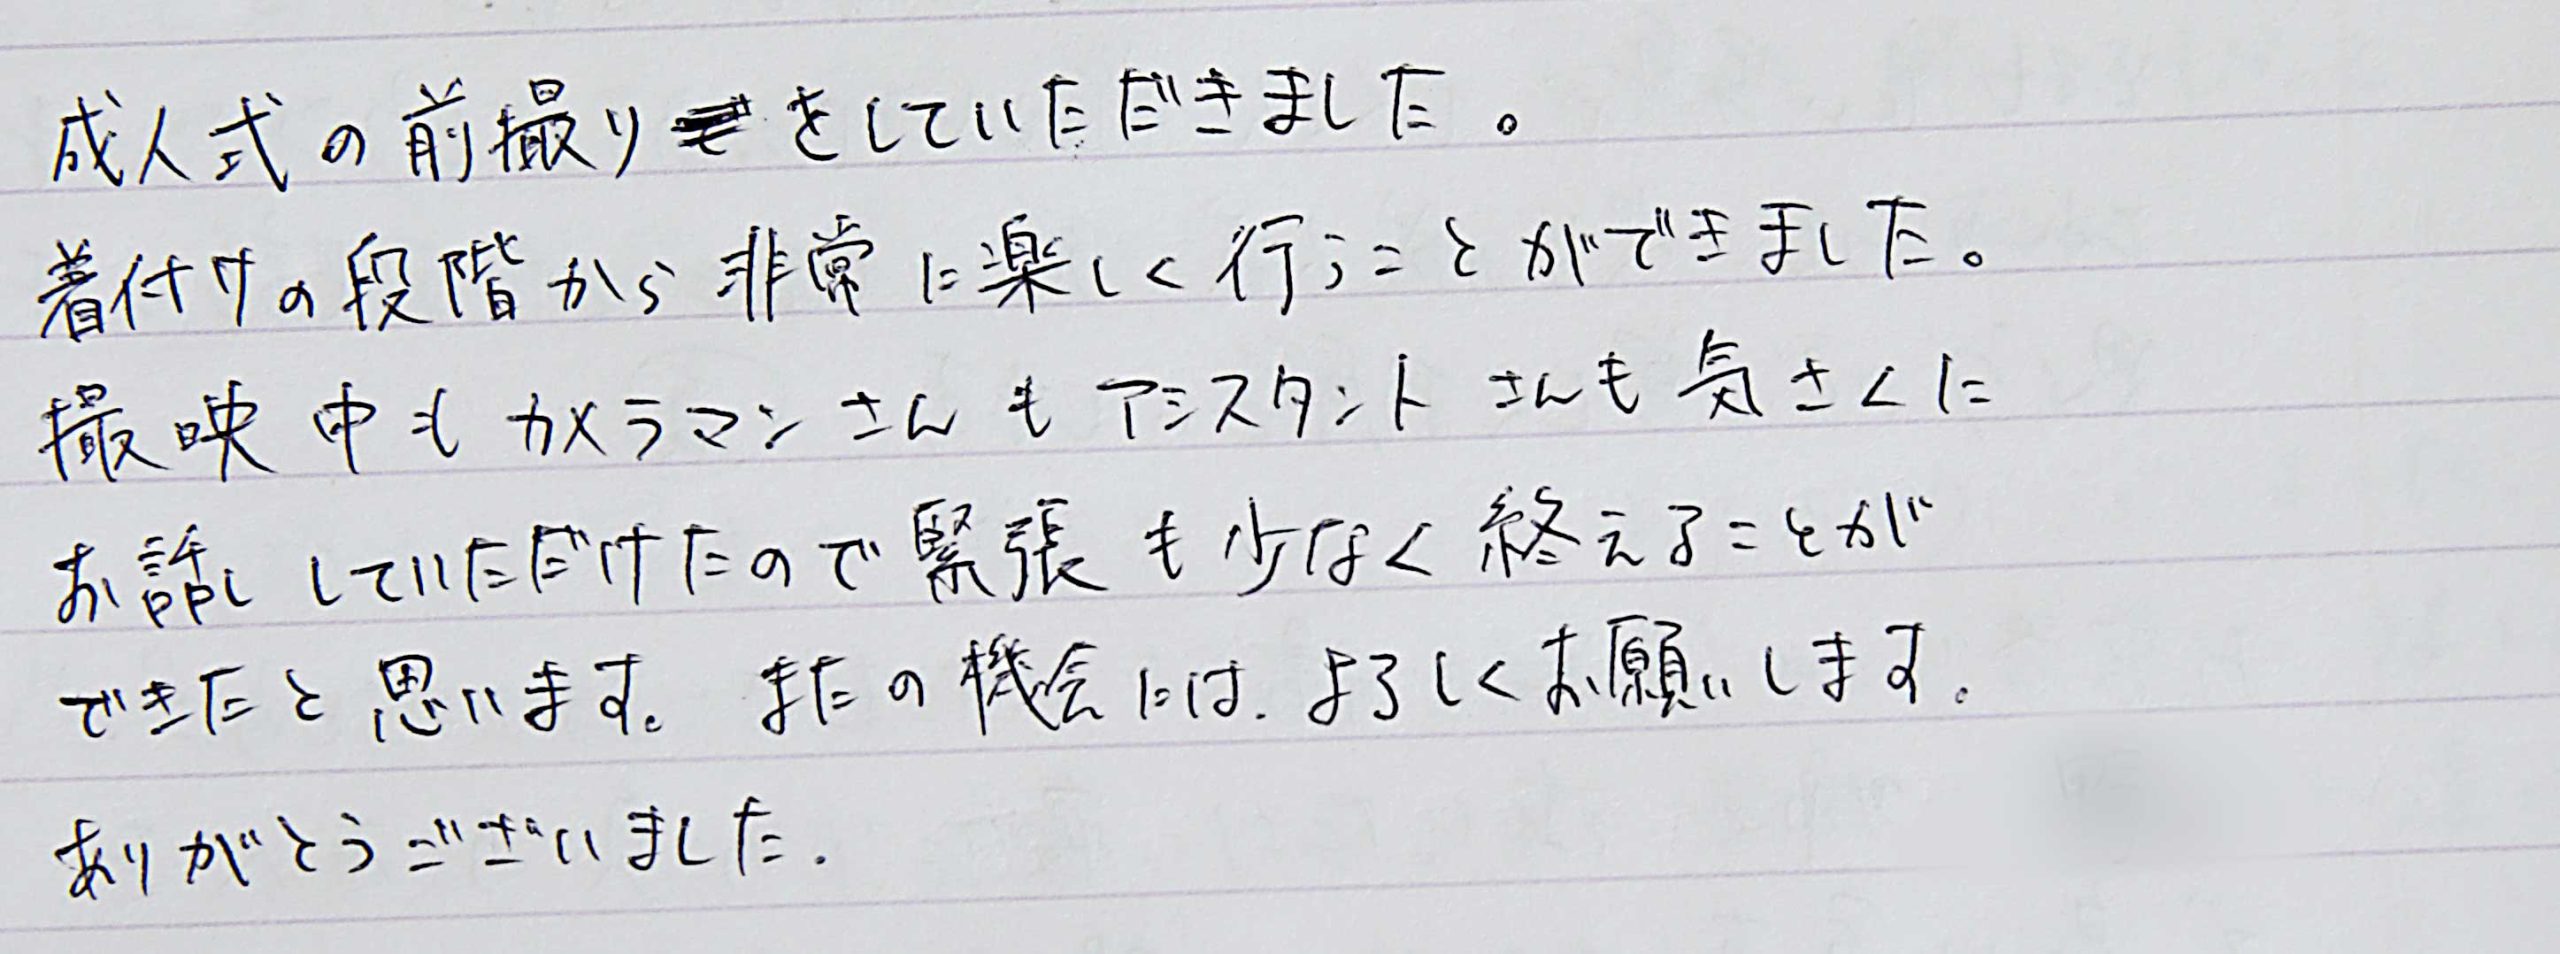 成人式の前撮りをしていただきました。
着付けの段階から非常に楽しく行うことができました。
撮映中もカメラマンさんもアシスタントさんも気さくに
お話ししていただけたので緊張も少なく終えることが
できたと思います。またの機会には、よろしくお願いします。
ありがとうございました。